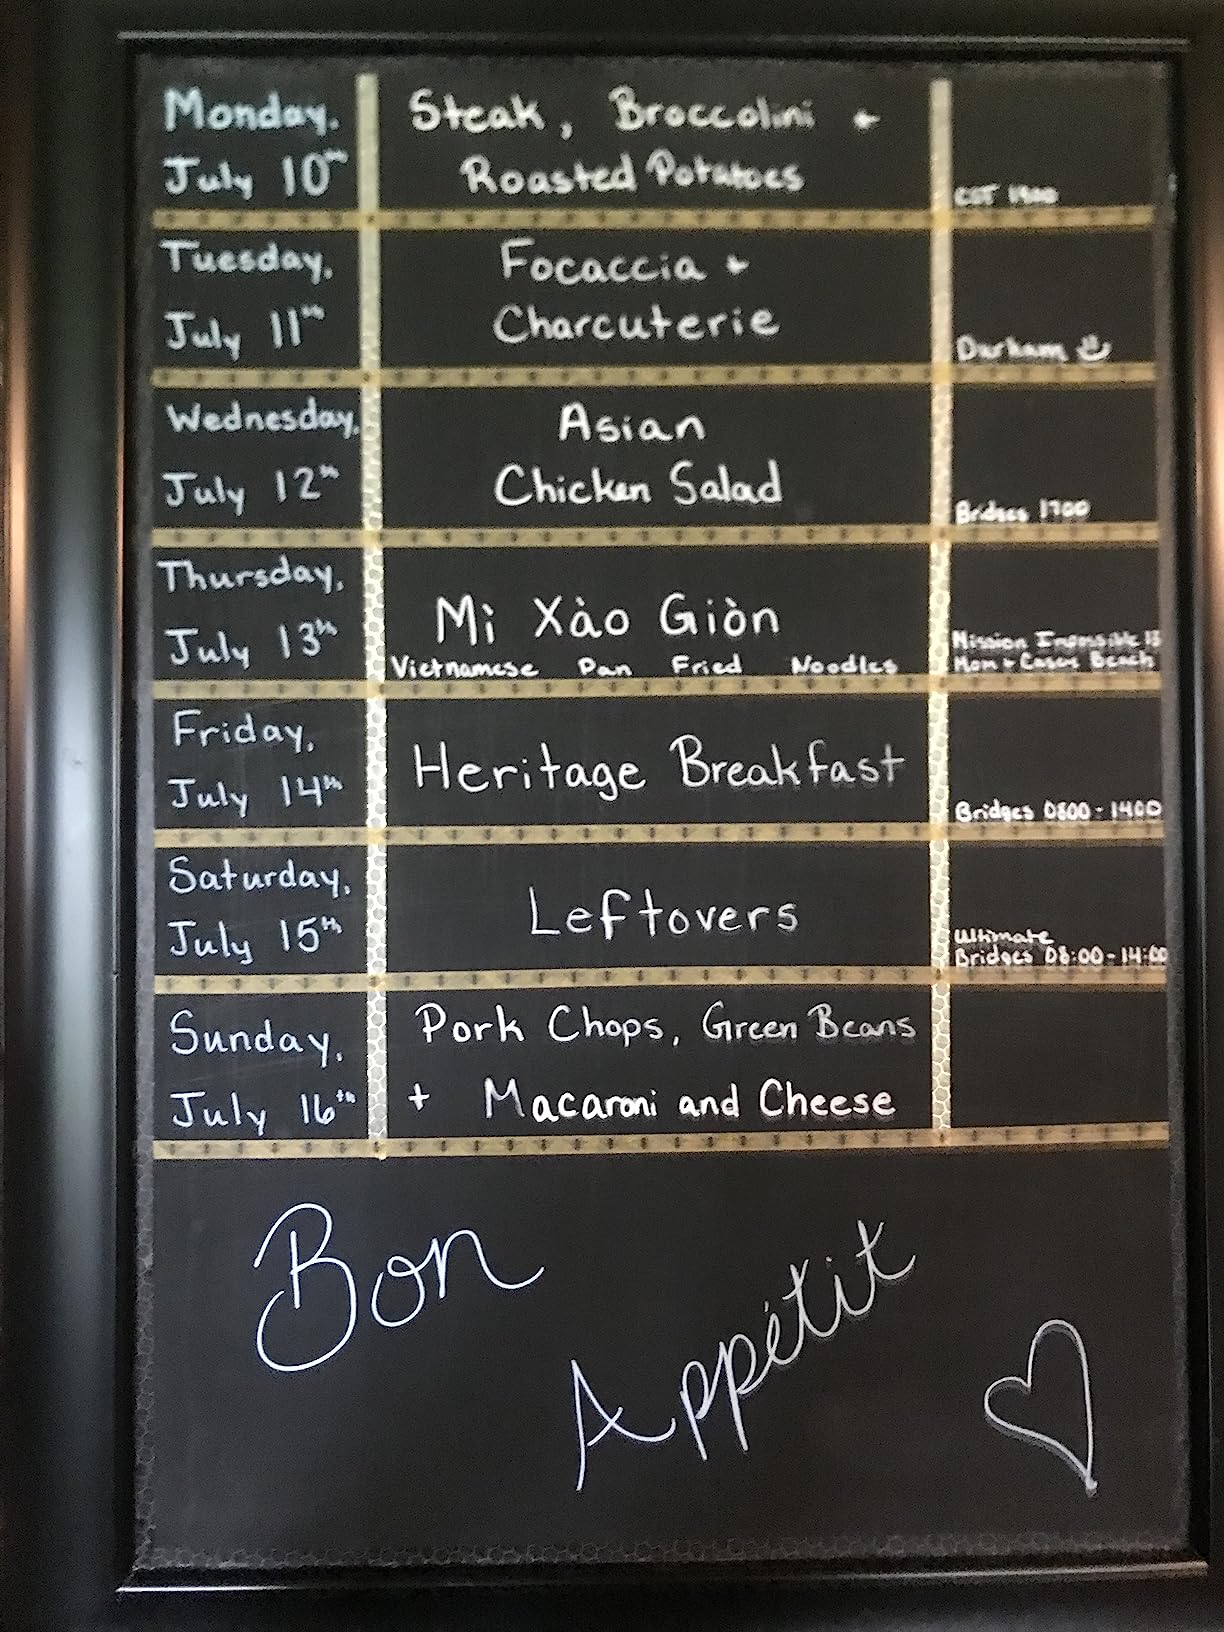 Monday,
July 10th
Steak, Broccolini +
Roasted Potatoes
CST 1900
Tuesday,
July 11th
Focaccia +
Charcuterie
Durham
Wednesday,
July 12th
Asian
Chicken Salad
Bridges 1700
Thursday,
July 13th
Mì Xào Giòn
Vietnamese Pan Fried Noodles
Mission
Mom + Beach
Friday,
July 14th
Heritage Breakfast
Bridges 0800-1400
Saturday,
July 15th
Leftovers
Ultimate
Bridges 08:00-14:00
Sunday,
July 16th
Pork Chops, Green Beans
+ Macaroni and Cheese
Bon
Appétit